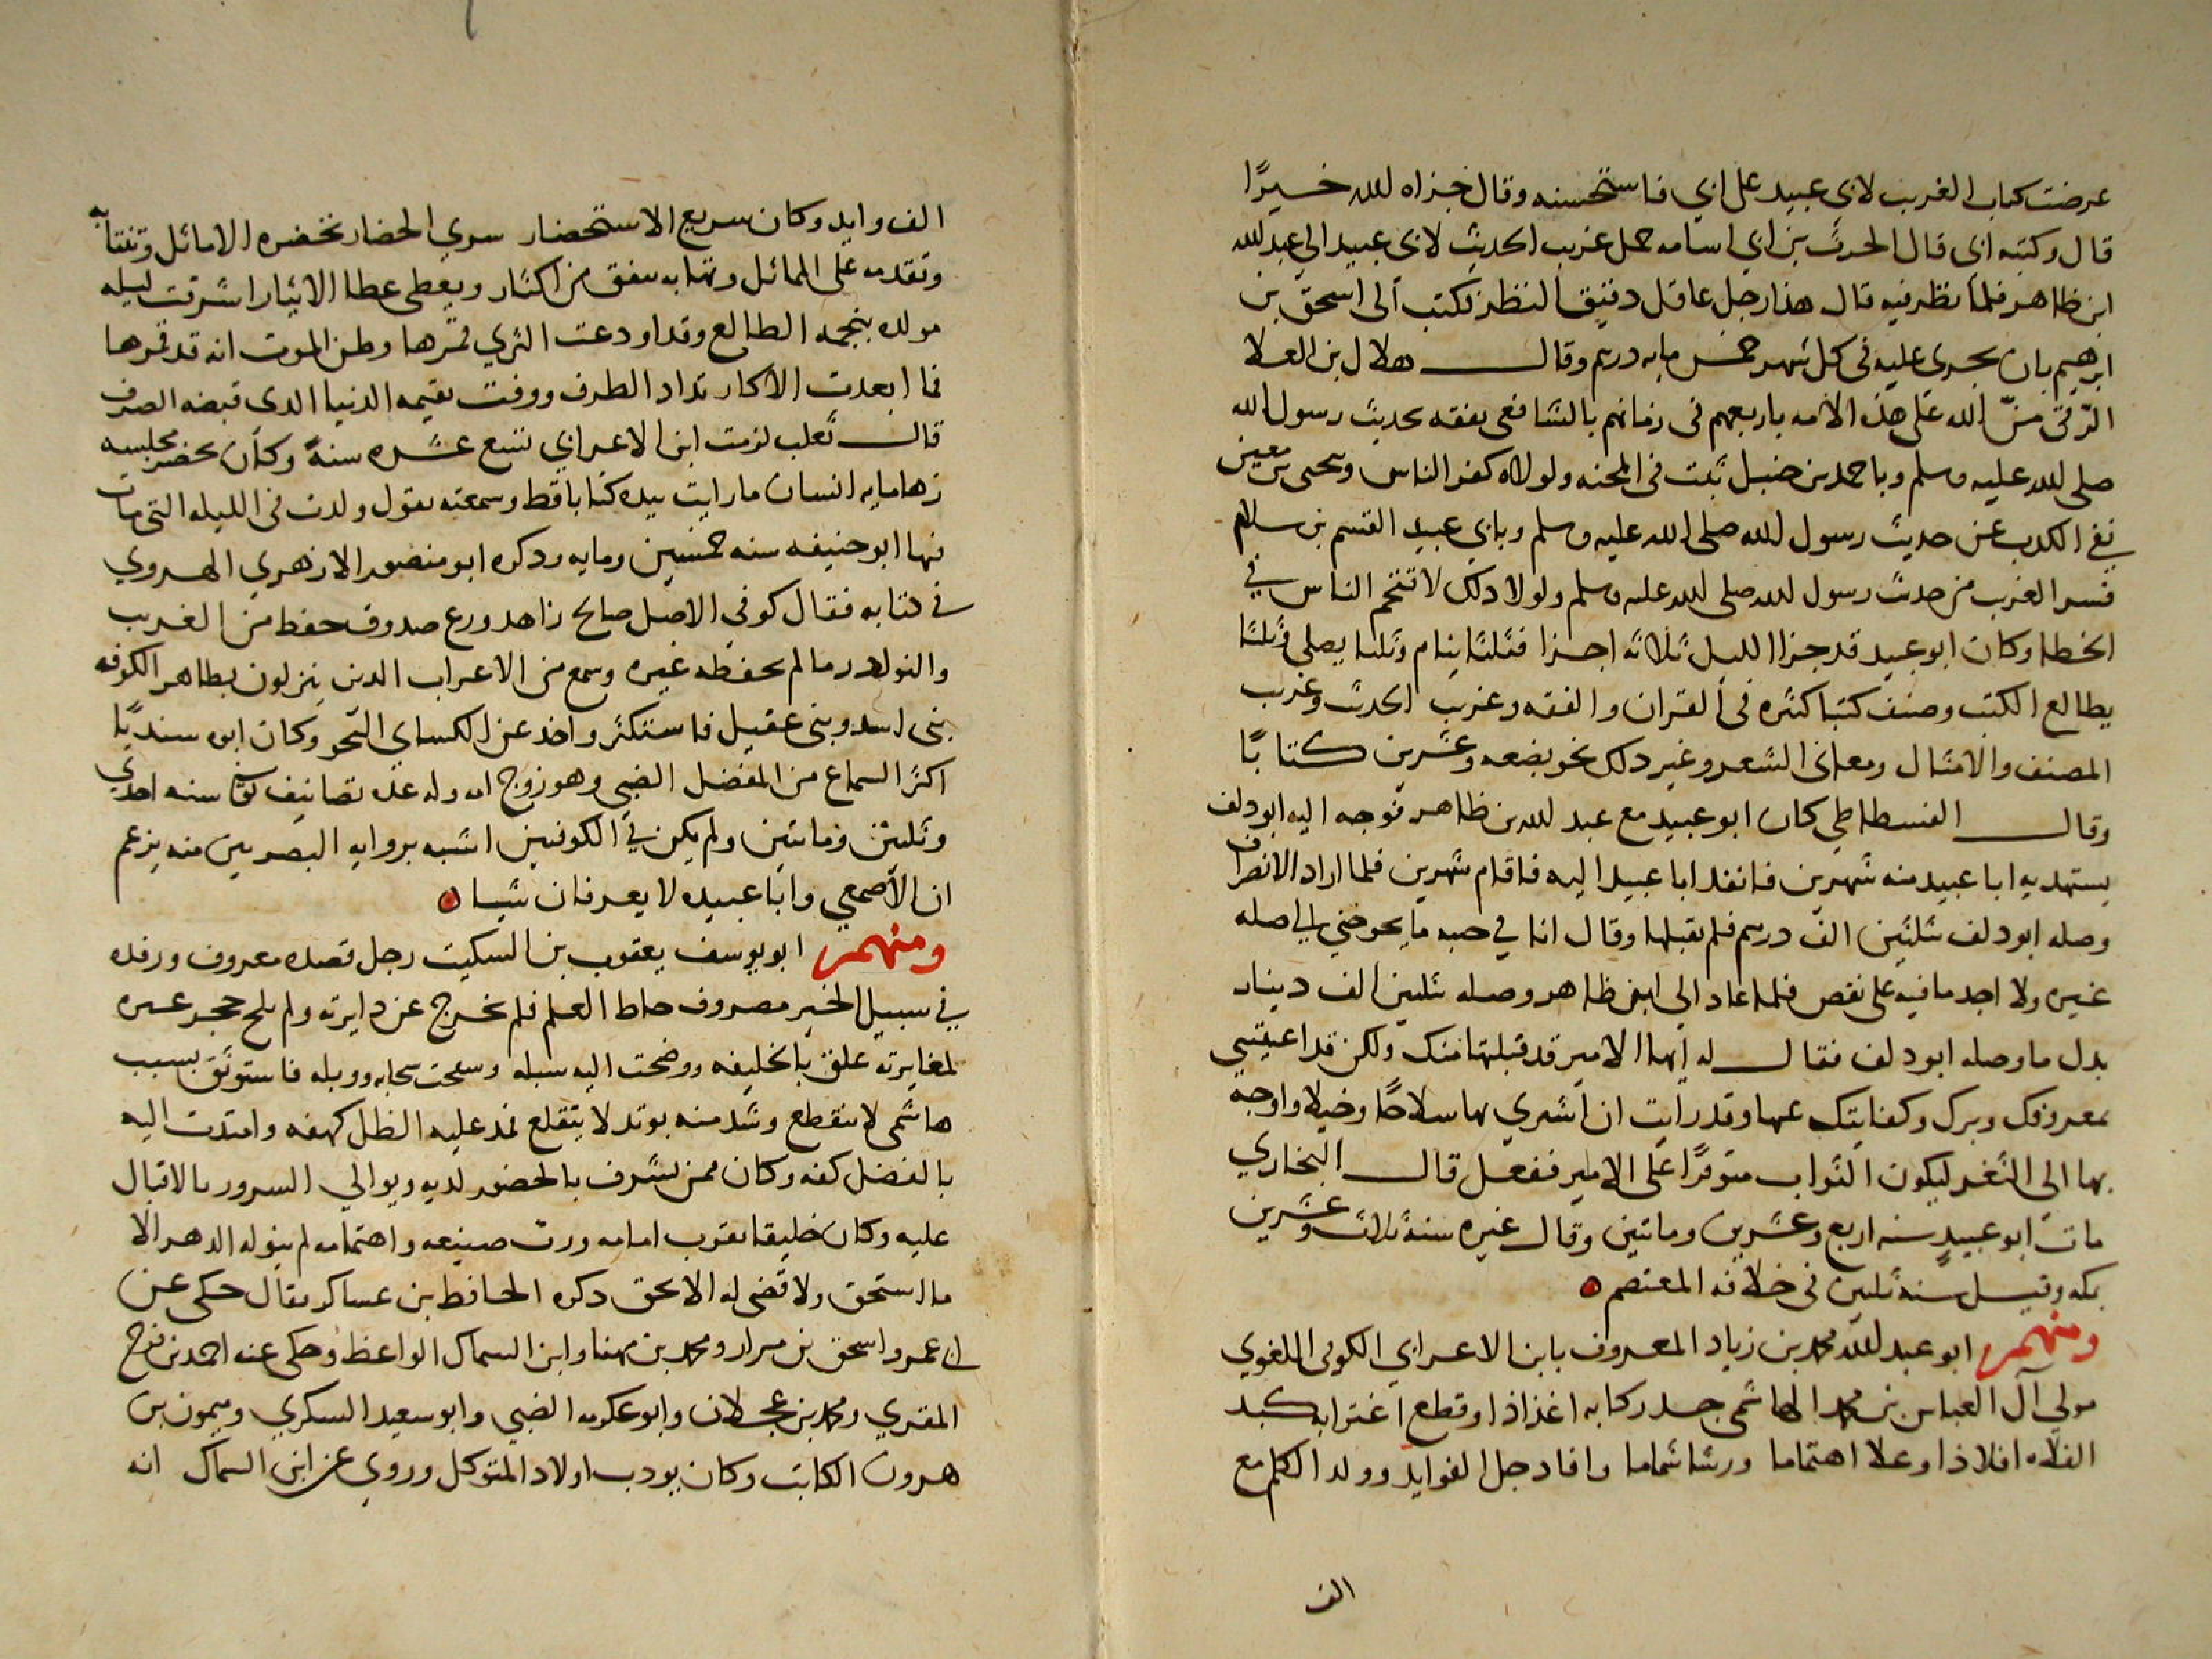 عرضت كتاب الغريب لابي عبيد على ابي فاستحسنه وقال جزاه الله خيرًا
قال وكتبه ابي قال الحرث بن ابي اسامه حمل غريب الحديث لابي عبيد الي عبد الله
ابن طاهر فلما نظر فيه قال هذا رجل عاقل دقيق النظر فكتب الى اسحق بن
ابرهيم بان يجرى عليه في كل شهر خمس مايه درهم وقال هلال بن العلا
الرقى منّ الله على هذه الامه باربعهم فى زمانهم بالشافعى بفقه بحديث رسول الله
صلى الله عليه وسلم وباحمد بن حنبل ثبت فى المحنه ولولاه كفر الناس وبيحيى بن معين
نفى الكدب عن حديث رسول الله صلى الله عليه وسلم وبابي عبيد القسم بن سلام
فسر الغريب من حديث رسول الله صلى الله عليه وسلم ولولا دلك لاقتحم الناس في
الخطا وكان ابو عبيد قد جزا الليل ثلاثه اجزا فثلثا ينام وثلثا يصلي وثلثا
يطالع الكتب وصنف كتبا كثره في القران والفقه وغريب الحديث وغريب
المصنف والامثال ومعانى الشعر وغير دلك نحو بضعه وعشرين كتابًا
وقال الفسطاطي كان ابو عبيد مع عبد الله بن طاهر فوجه اليه ابو دلف
يستهديه ابا عبيد منه شهرين فانفد ابا عبيد اليه فاقام شهرين فلما اراد الانصراف
وصله ابو دلف بثلثين الف درهم فلم يقبلها وقال انا في جنبه ما يحوجني الي صله
غيره ولا اجد ما فيه على نقص فلما عاد الي ابن طاهر وصله بثلثين الف دينار
بدل ما وصله ابو دلف فقال له ايها الامير قد قبلتها منك ولكن قد اغنيتني
بمعروفك وبرك وكفايتك عنها وقد رايت ان اشتري بها سلاحًا وخيلا واوجه
بها الي الثغر ليكون الثواب متوفرًا على الامير ففعل قال البخاري
مات ابو عبيد سنه اربع وعشرين وماتين وقال غيره سنة ثلاث وعشرين
بمكه وقيل سنة ثلثين فى خلافه المعتصم
ومنهم ابو عبد الله محمد بن زياد المعروف بابن الاعرابي الكوفي اللغوي
مولي آل العباس بن محمد الهاشمي جد ركابه اغذاذا وقطع اغترابه كبد
الفلاه افلاذا وعلا اهتماما ورسا شماما وافاد جل الفوايد وولد الكلم مع
الف
الف وايد وكان سريع الاستحضار سري الحضار تحضره الاماثل وتنتابه
وتقدمه على المماثل وتهابه ينفق من اكثار ويعطى عطا الايثار اشرقت ليله
مولده بنجمه الطالع وقد اودعت الثري قمرها وظن الموت انه قد قمرها
فما ابعدت الافكار تداد الطرف ووفت بقيمه الدنيا الدى قبضه الصرف
قال ثعلب لزمت ابن الاعرابي تسع عشره سنةً وكان يحضر مجلسه
زها مايه انسان ما رايت بيده كتابا قط وسمعته يقول ولدت فى الليله التي مات
فيها ابو حنيفه سنه خمسين ومايه ودكره ابو منصور الازهري الهروي
في كتابه فقال كوفى الاصل صالح زاهد ورع صدوق حفظ من الغريب
والنوادر ما لم يحفظه غيره وسمع من الاعراب الدين ينزلون بظاهر الكوفه
بنى اسد وبنى عقيل فاستكثر واخد عن الكساي النحو وكان ابوه سنديًا
اكثر السماع من المفضل الضبي وهو زوج امه وله عده تصانيف توفى سنه احدي
وثلثين وماتين ولم يكن في الكوفيين اشبه بروايه البصريين منه يزعم
ان الاصمعي وابا عبيده لا يعرفان شيا
ومنهم ابو يوسف يعقوب بن السكيت رجل قصده معروف ورفده
في سبيل الخير مصروف حاط العلم فلم يخرج عن دايرته ولم يلج حجر غيره
لمغايرته علق بالخليفه ووضحت اليه سبله وسحت سحابه ووبله فاستوثق بسبب
هاشمى لا ينقطع وشد منه بوتد لا يتقلع فمد عليه الظل كهفه وامتدت اليه
بالفضل كفه وكان ممن يشرف بالحضور لديه ويوالي السرور بالاقبال
عليه وكان خليقا بقرب امامه ورب صنيعه واهتمامه لم ينوله الدهر الا
ما استحق ولا قضى له الا بحق دكره الحافظ بن عساكر فقال حكى عن
ابي عمرو اسحق بن مرار ومحمد بن مهنا وابن السماك الواعظ وحكى عنه احمد بن فرح
المقري ومحمد بن عجلان وابو عكرمه الضبي وابو سعيد السكري وميمون بن
هرون الكاتب وكان يودب اولاد المتوكل وروي عن ابن السماك انه